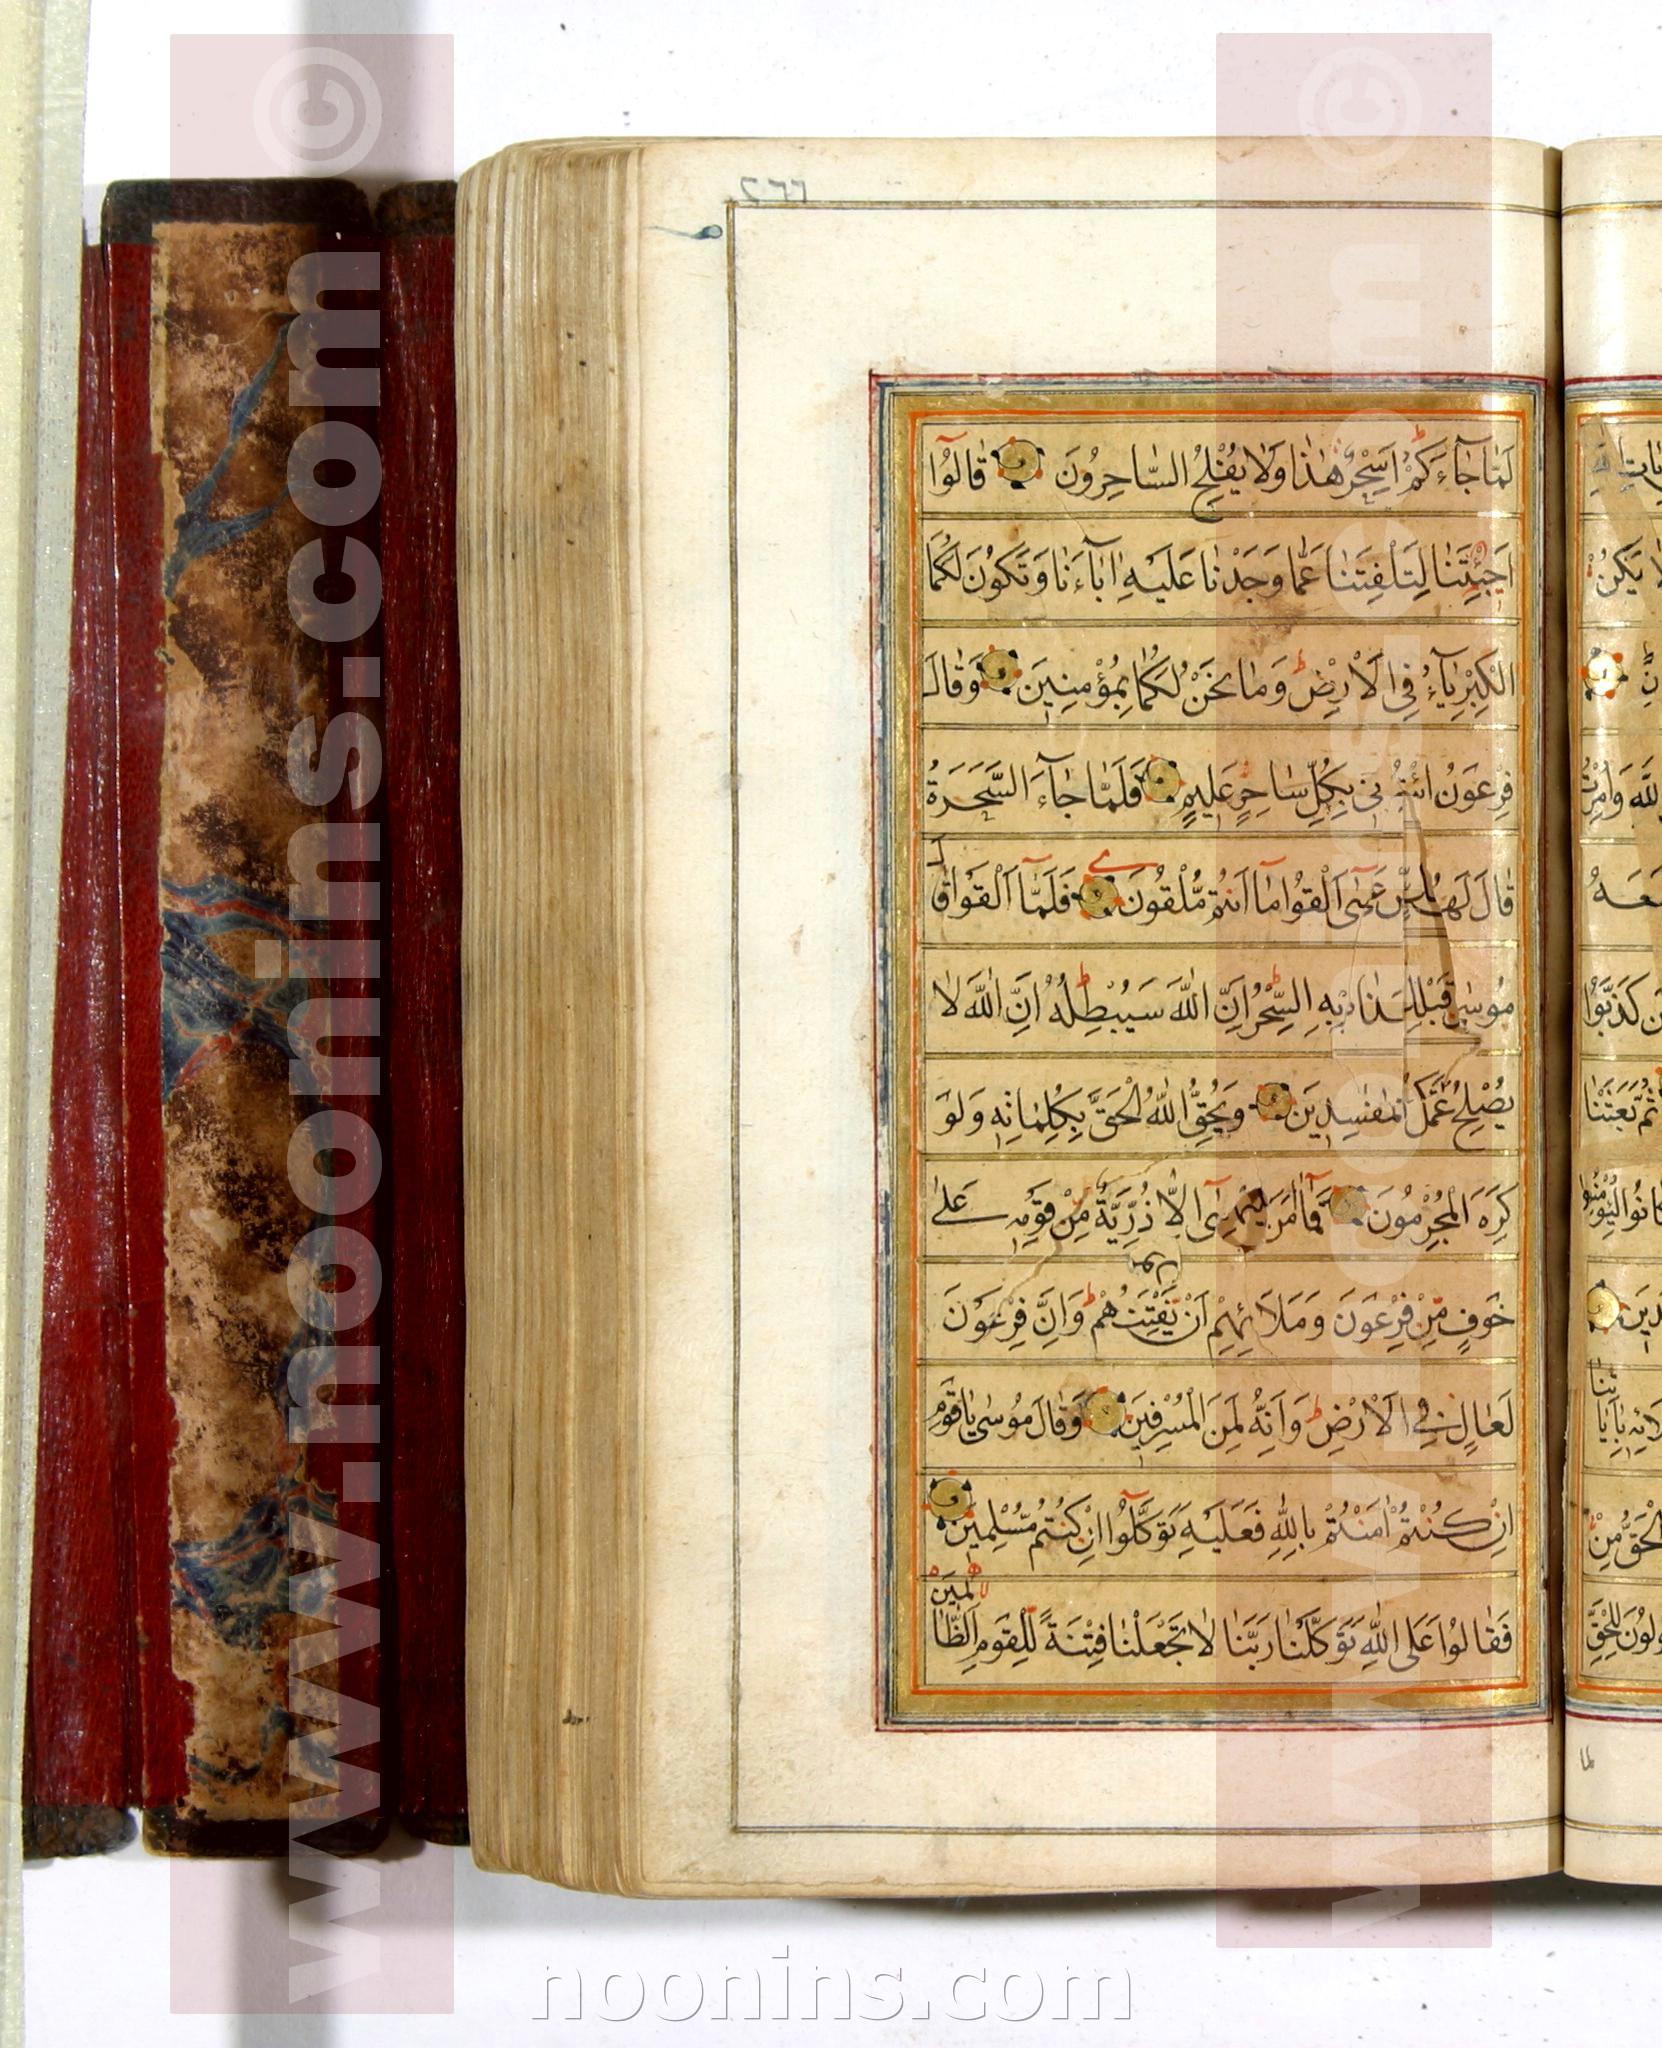 ٢٦٦
لَمَّا جَاءَكُمْ أَسِحْرٌ هٰذَا وَلَا يُفْلِحُ السَّاحِرُونَ قَالُوا
اَجِئْتَنَا لِتَلْفِتَنَا عَمَّا وَجَدْنَا عَلَيْهِ اٰبَآءَنَا وَتَكُونَ لَكُمَا
الْكِبْرِيَآءُ فِي الْاَرْضِ وَمَا نَحْنُ لَكُمَا بِمُؤْمِنِينَ وَقَالَ
فِرْعَوْنُ ائْتُونِي بِكُلِّ سَاحِرٍ عَلِيمٍ فَلَمَّا جَآءَ السَّحَرَةُ
قَالَ لَهُمْ مُوسٰٓى اَلْقُوا مَآ اَنْتُمْ مُلْقُونَ فَلَمَّآ اَلْقَوْا قَالَ
مُوسٰى مَا جِئْتُمْ بِهِ السِّحْرُ اِنَّ اللّٰهَ سَيُبْطِلُهُ اِنَّ اللّٰهَ لَا
يُصْلِحُ عَمَلَ الْمُفْسِدِينَ وَيُحِقُّ اللّٰهُ الْحَقَّ بِكَلِمَاتِهِ وَلَوْ
كَرِهَ الْمُجْرِمُونَ فَمَآ اٰمَنَ لِمُوسٰٓى اِلَّا ذُرِّيَّةٌ مِنْ قَوْمِهِ عَلٰى
خَوْفٍ مِنْ فِرْعَوْنَ وَمَلَائِهِمْ اَنْ يَفْتِنَهُمْ وَاِنَّ فِرْعَوْنَ
لَعَالٍ فِي الْاَرْضِ وَاِنَّهُ لَمِنَ الْمُسْرِفِينَ وَقَالَ مُوسٰى يَا قَوْمِ
اِنْ كُنْتُمْ اٰمَنْتُمْ بِاللّٰهِ فَعَلَيْهِ تَوَكَّلُوٓا اِنْ كُنْتُمْ مُسْلِمِينَ
فَقَالُوا عَلَى اللّٰهِ تَوَكَّلْنَا رَبَّنَا لَا تَجْعَلْنَا فِتْنَةً لِلْقَوْمِ الظَّالِمِينَ
www.noonins.com ©
www.noonins.com ©
noonins.com